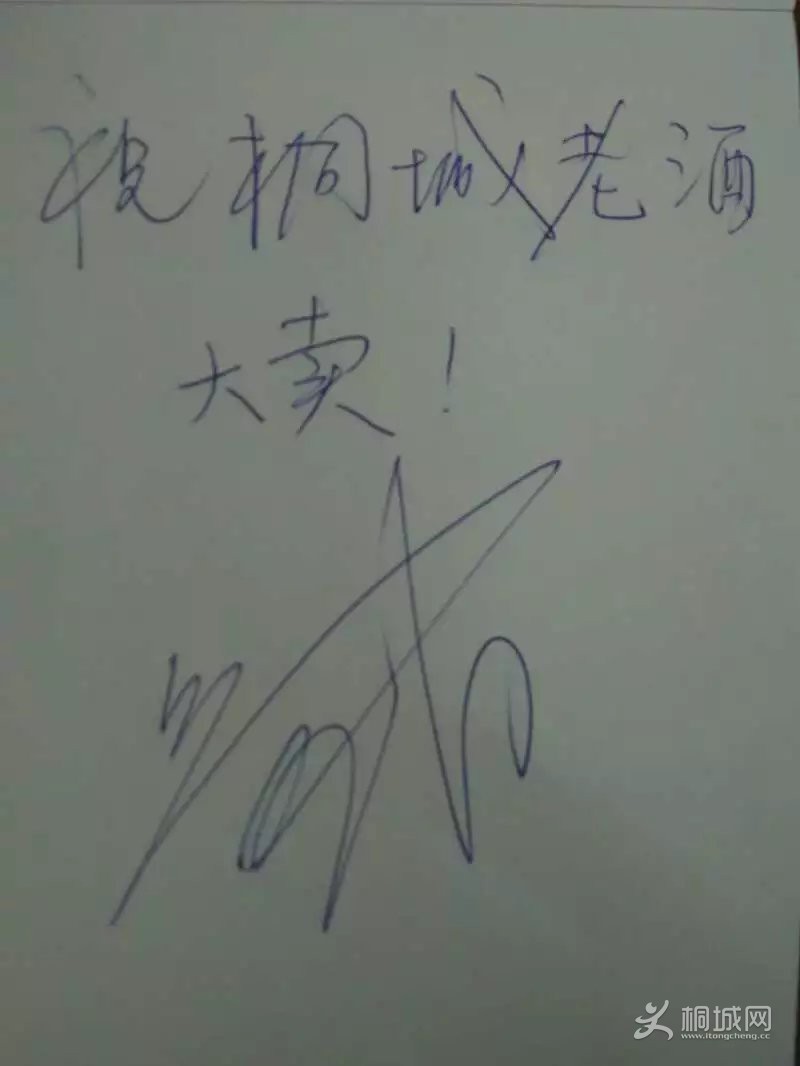 祝桐城老酒
大卖！
桐城网
www.itongcheng.cc